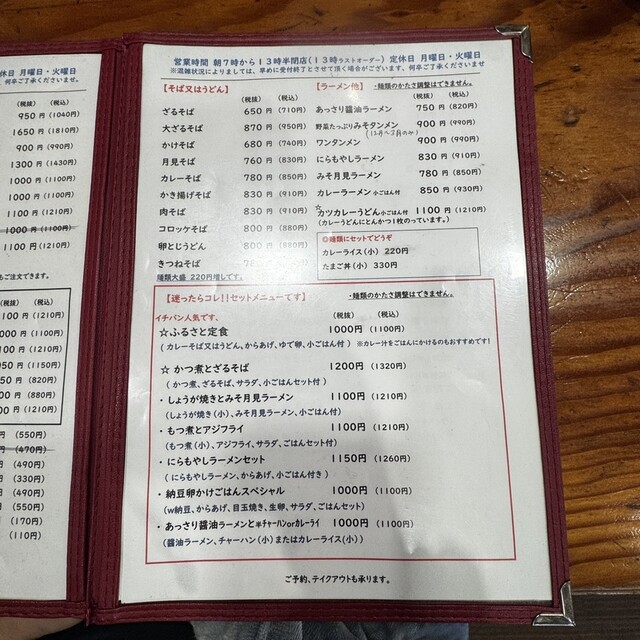 休日 月曜日・火曜日
何卒ご了承くださいませ
(税抜) (税込)
950円(1040円)
1650円(1810円)
900円(990円)
1300円(1430円)
1000円(1100円)
1000円(1100円)
1100円(1210円)
1000円(1100円)
1100円(1210円)
もご注文できます。
(税抜) (税込)
100円(1210円)
000円(1100円)
100円(1210円)
050円(1150円)
750円(820円)
800円(880円)
1100円(1210円)
円(550円)
円(470円)
円(490円)
円(330円)
円(490円)
円(550円)
(170円)
(110円)
営業時間 朝7時から13時半閉店(13時ラストオーダー) 定休日 月曜日・火曜日
※混雑状況によりましては、早めに受付終了とさせて頂く場合がございます。何卒ご了承くださいませ
【そば又はうどん】
(税抜) (税込)
ざるそば 650円(710円)
大ざるそば 870円(950円)
かけそば 680円(740円)
月見そば 760円(830円)
カレーそば 780円(850円)
かき揚げそば 830円(910円)
肉そば 830円(910円)
コロッケそば 800円(880円)
卵とじうどん 800円(880円)
きつねそば
麺類大盛 220円増しです。
【ラーメン他】 ・麺類のかたさ調整はできません。
(税抜) (税込)
あっさり醤油ラーメン 750円(820円)
野菜たっぷりみそタンメン 900円(990円)
ワンタンメン 900円(990円)
にらもやしラーメン 830円(910円)
みそ月見ラーメン 780円(850円)
カレーラーメン 小ごはん付 850円(930円)
☆カツカレーうどん 小ごはん付 1100円(1210円)
(カレーうどんにとんかつ1枚のっています。)
◎麺類にセットでどうぞ
カレーライス(小) 220円
たまご丼(小) 330円
【迷ったらコレ!!セットメニューです】 ・麺類のかたさ調整はできません。
イチバン人気です、 (税抜) (税込)
☆ふるさと定食 1000円(1100円)
(カレーそば又はうどん、からあげ、ゆで卵、小ごはん付) ※カレー汁をごはんにかけるのもおすすめです!
☆かつ煮とざるそば 1200円(1320円)
(かつ煮、ざるそば、サラダ、小ごはんセット付)
・しょうが焼きとみそ月見ラーメン 1100円(1210円)
(しょうが焼き(小)、みそ月見ラーメン、小ごはん付)
・もつ煮とアジフライ 1100円(1210円)
(もつ煮(小)、アジフライ、サラダ、ごはんセット付)
・にらもやしラーメンセット 1150円(1260円)
(にらもやしラーメン、からあげ、小ごはん付き)
・納豆卵かけごはんスペシャル 1000円(1100円)
(w納豆、からあげ、目玉焼き、生卵、サラダ、ごはんセット)
・あっさり醤油ラーメンと半チャーハンorカレーライ 1000円(1100円)
(醤油ラーメン、チャーハン(小)またはカレーライス(小))
ご予約、テイクアウトも承ります。